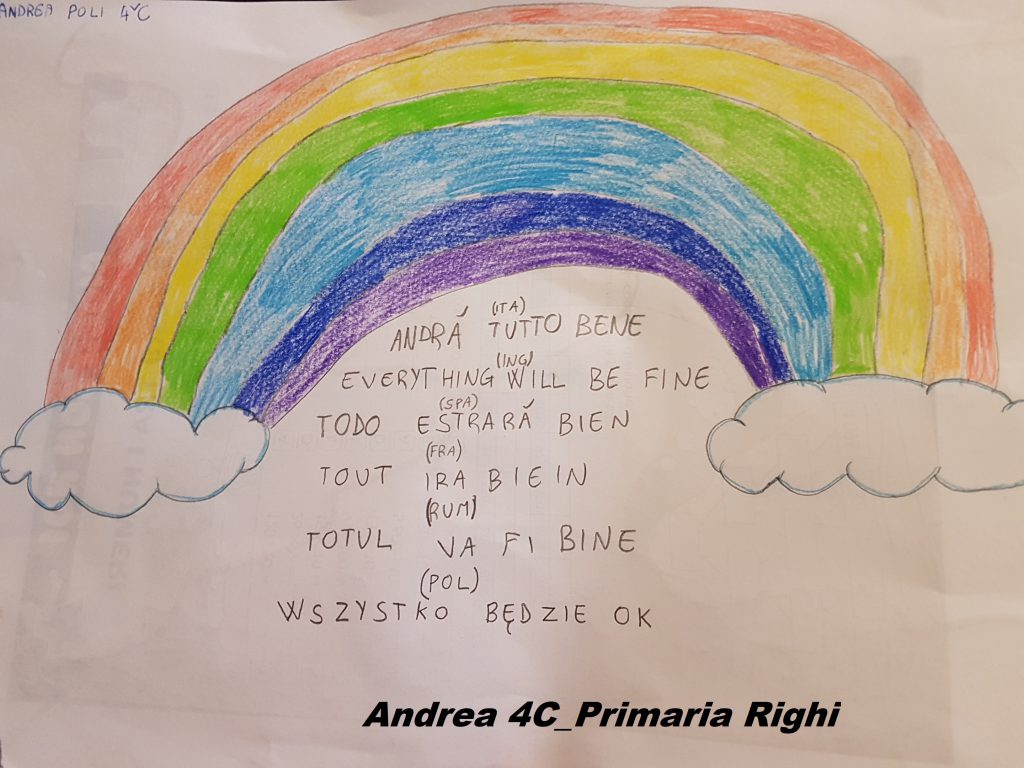 ANDREA POLI 4°C
(ITA)
ANDRÁ TUTTO BENE
(ING)
EVERYTHING WILL BE FINE
(SPA)
TODO ESTRARÁ BIEN
(FRA)
TOUT IRA BIEIN
(RUM)
TOTUL VA FI BINE
(POL)
WSZYSTKO BĘDZIE OK
Andrea 4C_Primaria Righi